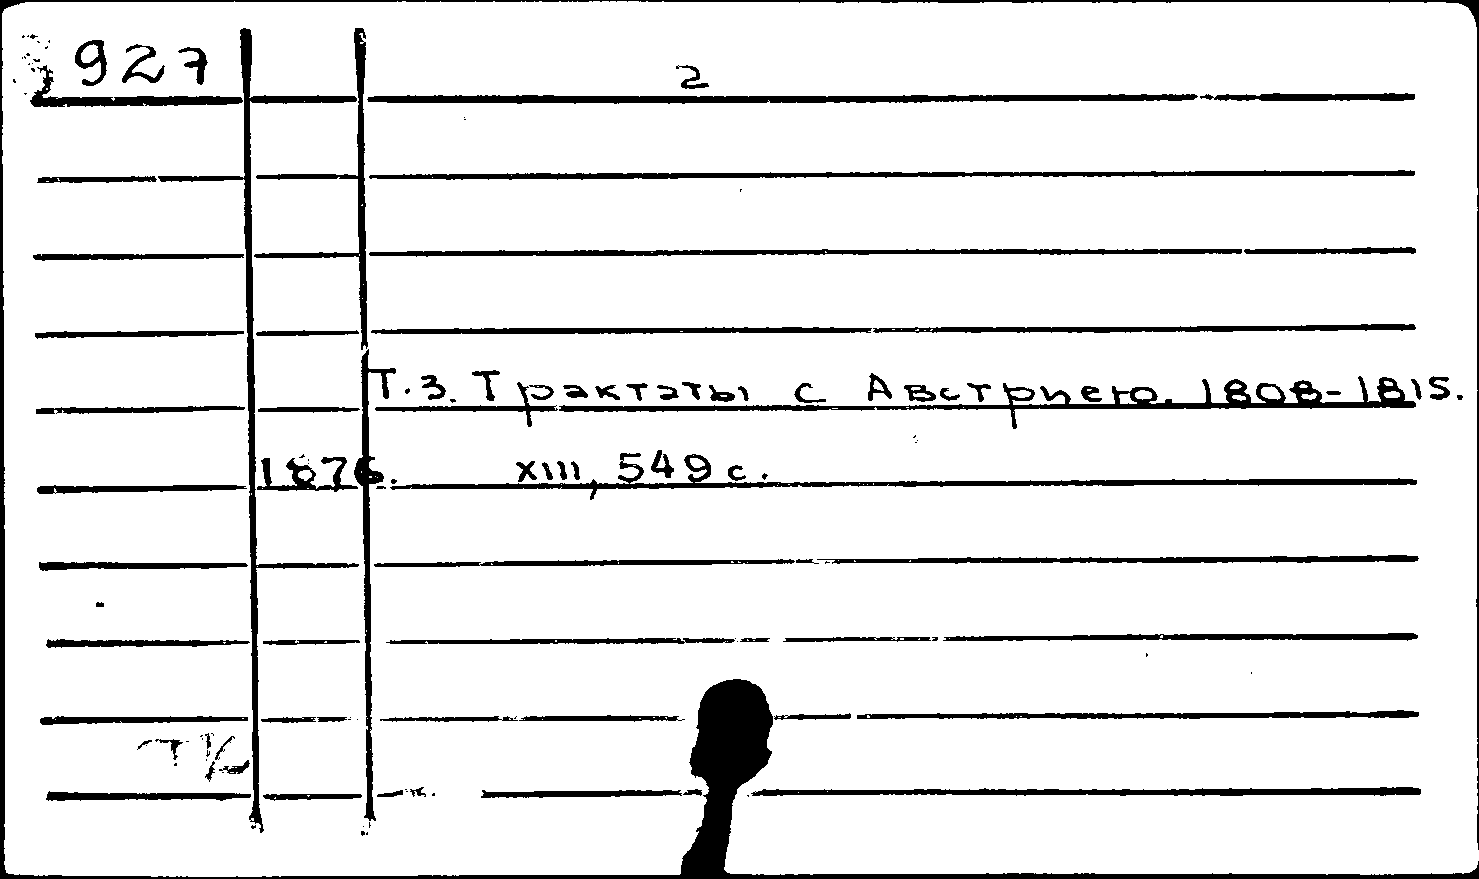 927
2
Т.3. Трактаты с Австриею. 1808-1815.
1876. XIII, 549 с.